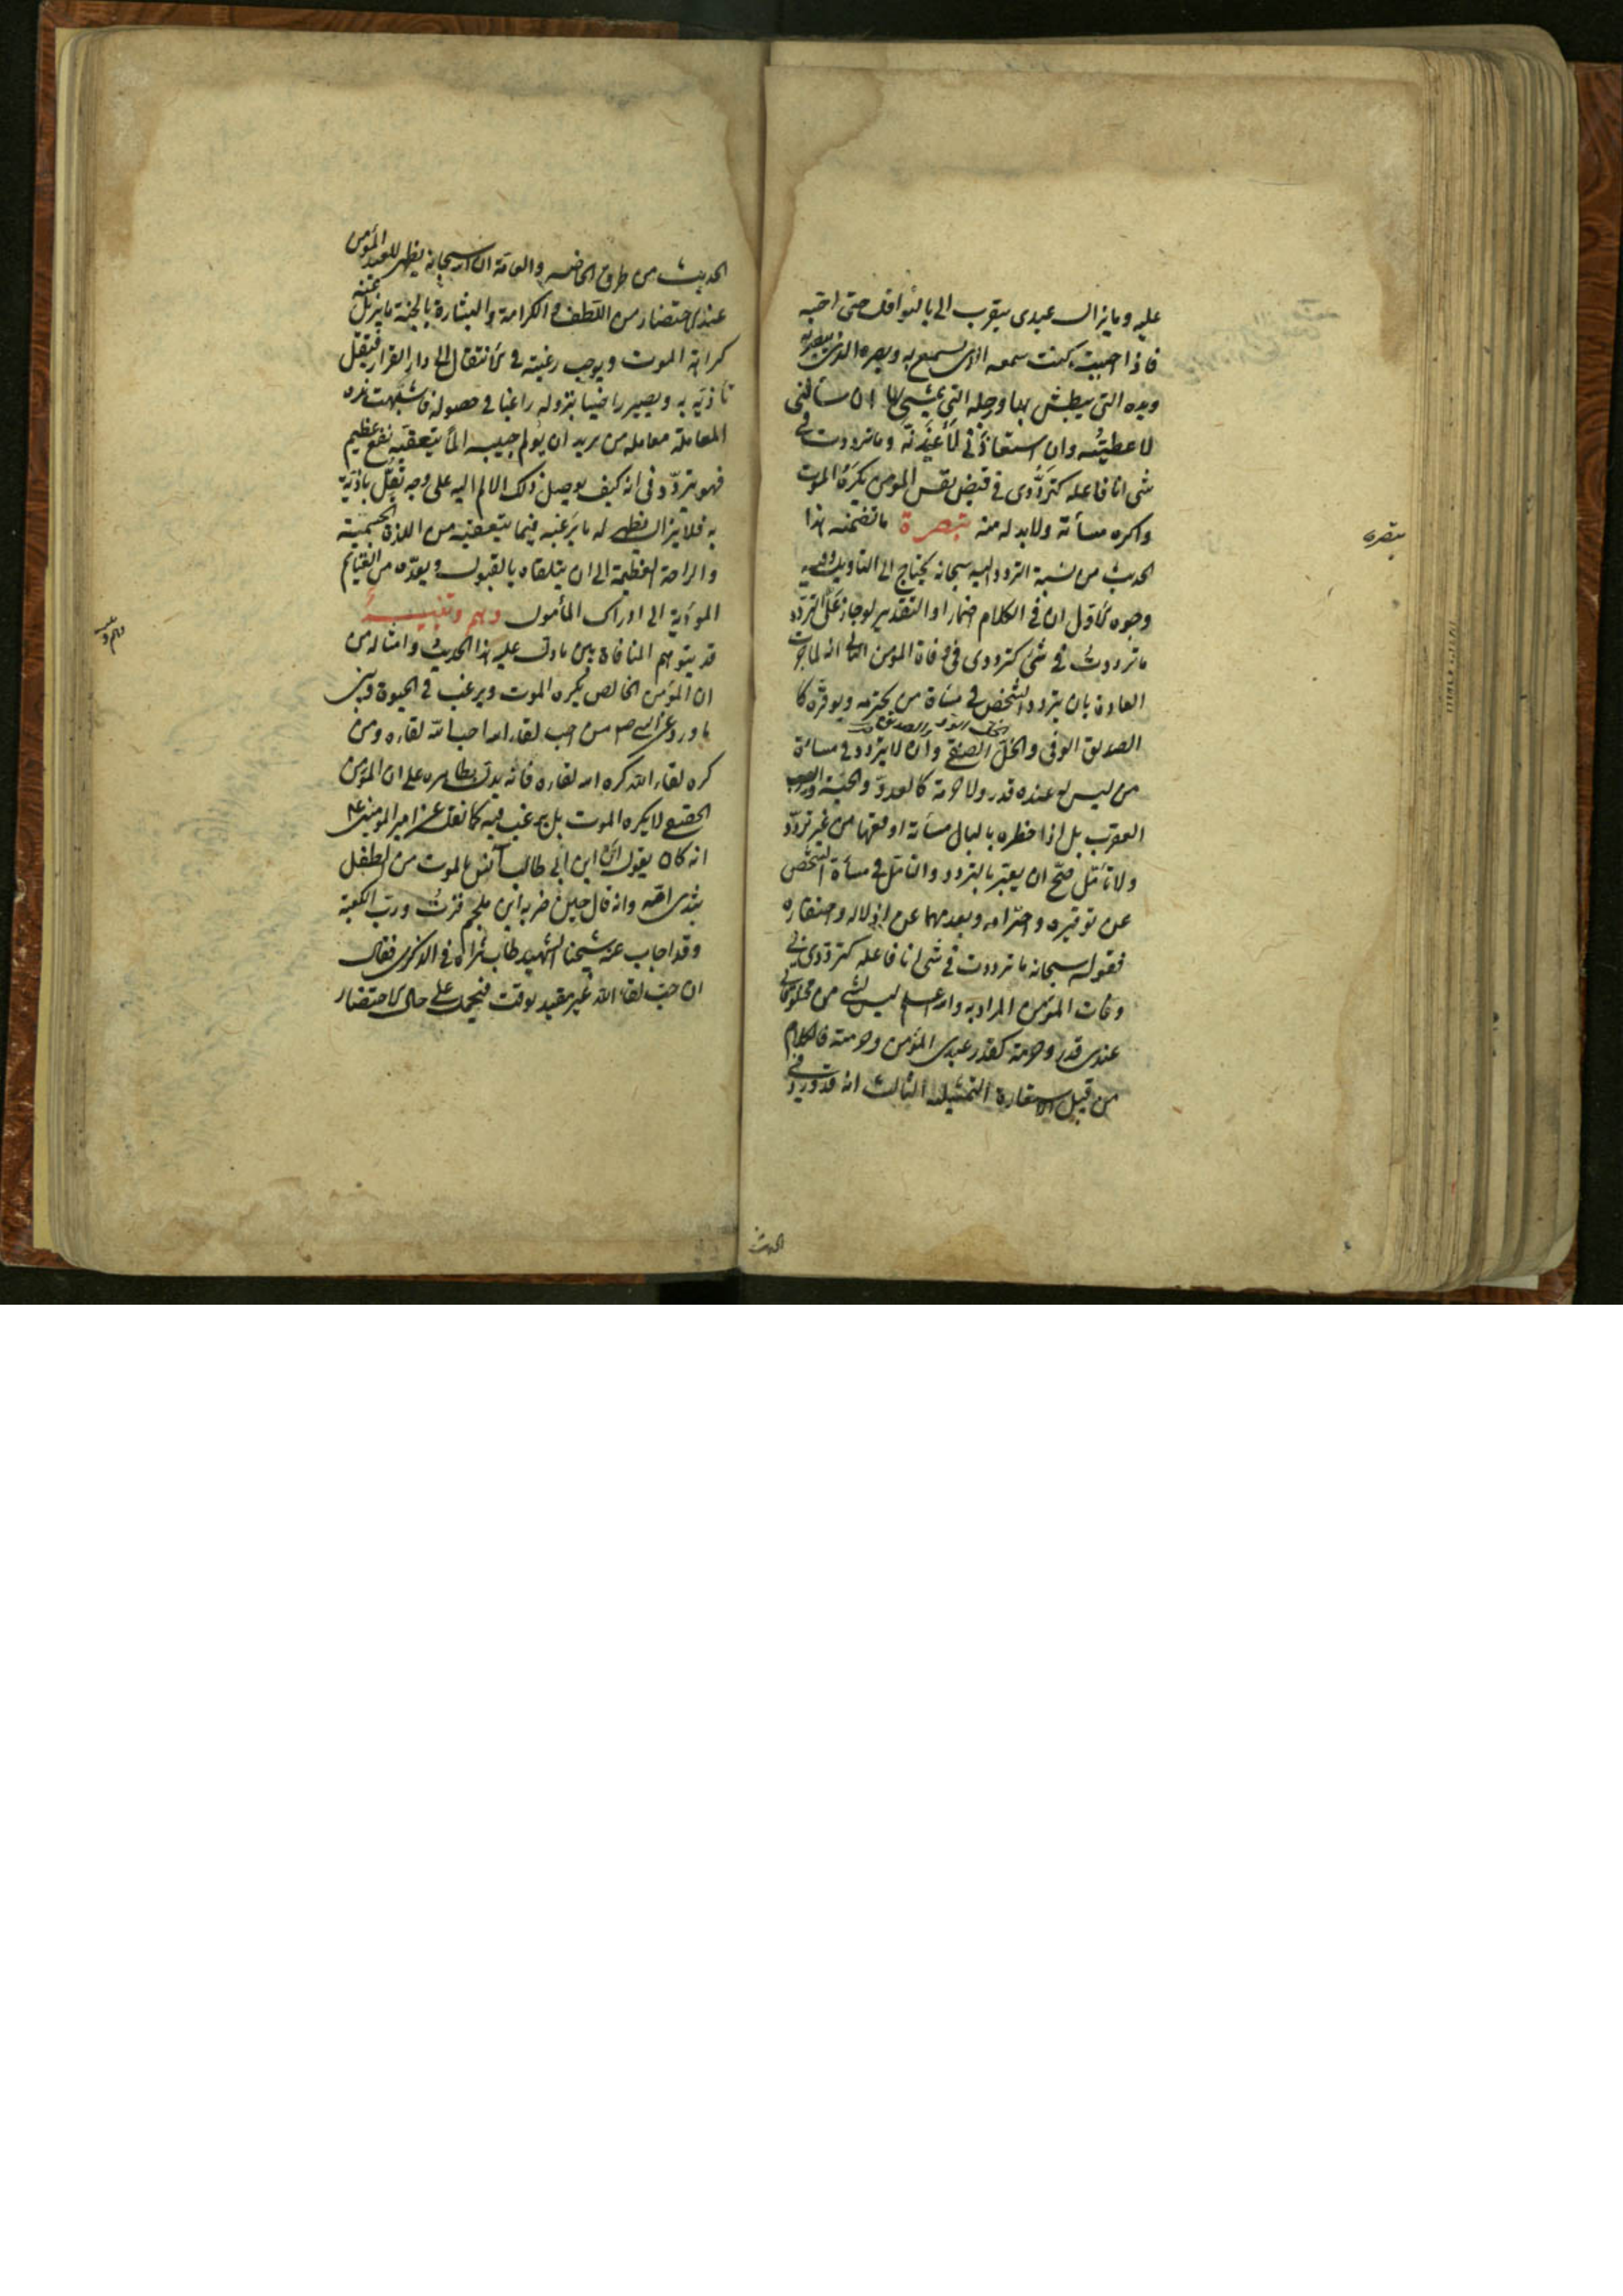 عليه وما يزال عبدى يتقرب الى بالنوافل حتى احبه
فاذا احببته كنت سمعه الذى يسمع به وبصره الذى يبصر به
ويده التى يبطش بها ورجله التى يمشى بها ان سألنى
لاعطيته وان استعاذنى لاعيذنه وما ترددت فى
شى انا فاعله كترددى فى قبض نفس المومن يكره الموت
واكره مسأته ولابد له منه تبصرة ما تضمنه هذا
الحديث من نسبة التردد اليه سبحانه يحتاج الى التاويل وفيه
وجوه الاول ان فى الكلام اضمارا والتقدير لو جاز على التردد
ما ترددت فى شئ كترددى فى وفاة المومن الثانى انه لما جرت
العادة بان يتردد الشخص فى مساة من يحترمه ويوقره كا
الصديق الوفى والخل الصفى وان لا يتردد فى مسائة
من ليس له عنده قدر ولا حرمة كالعدو والحية والعقرب
العقرب بل اذا خطره بالبال مسأته اوقعها من غير تردد
ولا تأمل صح ان يعبر بالتردد والتامل فى مسأة الشخص
عن توقيره واحترامه وبعدمهما عن اذلاله واحتقاره
فقوله سبحانه ما ترددت فى شى انا فاعله كترددى فى
وفات المؤمن المراد به والله اعلم ليس لشى من مخلوقاتى
عندى قدر وحرمة كقدر عبدى المؤمن وحرمته فالكلام
من قبيل الاستعارة التمثيلية الثالث انه قد ورد فى
الحديث
تبصره
الحديث من طرق الخاصه والعامة ان الله سبحانه يظهر للعبد المؤمن
عند الاحتضار من اللطف والكرامة والبشارة بالجنة ما يزيل عنه
كراهة الموت ويوجب رغبته فى الانتقال الى دار القرار فيقل
تاذيه به ويصير راضيا بنزوله راغبا فى حصوله فاشبهت هذه
المعاملة معاملة من يريد ان يولم حبيبه الما يتعقبه نفع عظيم
فهو يتردد فى انه كيف يوصل ذلك الالم اليه على وجه يقل تاذيه
به فلا يزال يظهر له ما يرغبه فيما يتعقبه من اللذة الجسمية
والراحة العظيمة الى ان يتلقاه بالقبول ويعده من الغنايم
المودية الى ادراك المأمول وهم وتنبيه
قد يتوهم المنافاة بين ما دل عليه هذا الحديث وامثاله من
ان المؤمن الخالص يكره الموت ويرغب فى الحيوة وبين
ما ورد عن النبى ص من احب لقاء الله احب الله لقاءه ومن
كره لقاء الله كره الله لقاءه فانه يدل بظاهره على ان المؤمن
الحقيقى لا يكره الموت بل يرغب فيه كما نقل عن امير المومنين ع
انه كان يقول ان ابن ابى طالب آنس بالموت من الطفل
بثدى امه وانه قال حين ضربه ابن ملجم فزت ورب الكعبة
وقد اجاب عنه شيخنا الشهيد طاب ثراه فى الذكرى فقال
ان حب لقاء الله غير مقيد بوقت فيحمل على حال الاحتضار